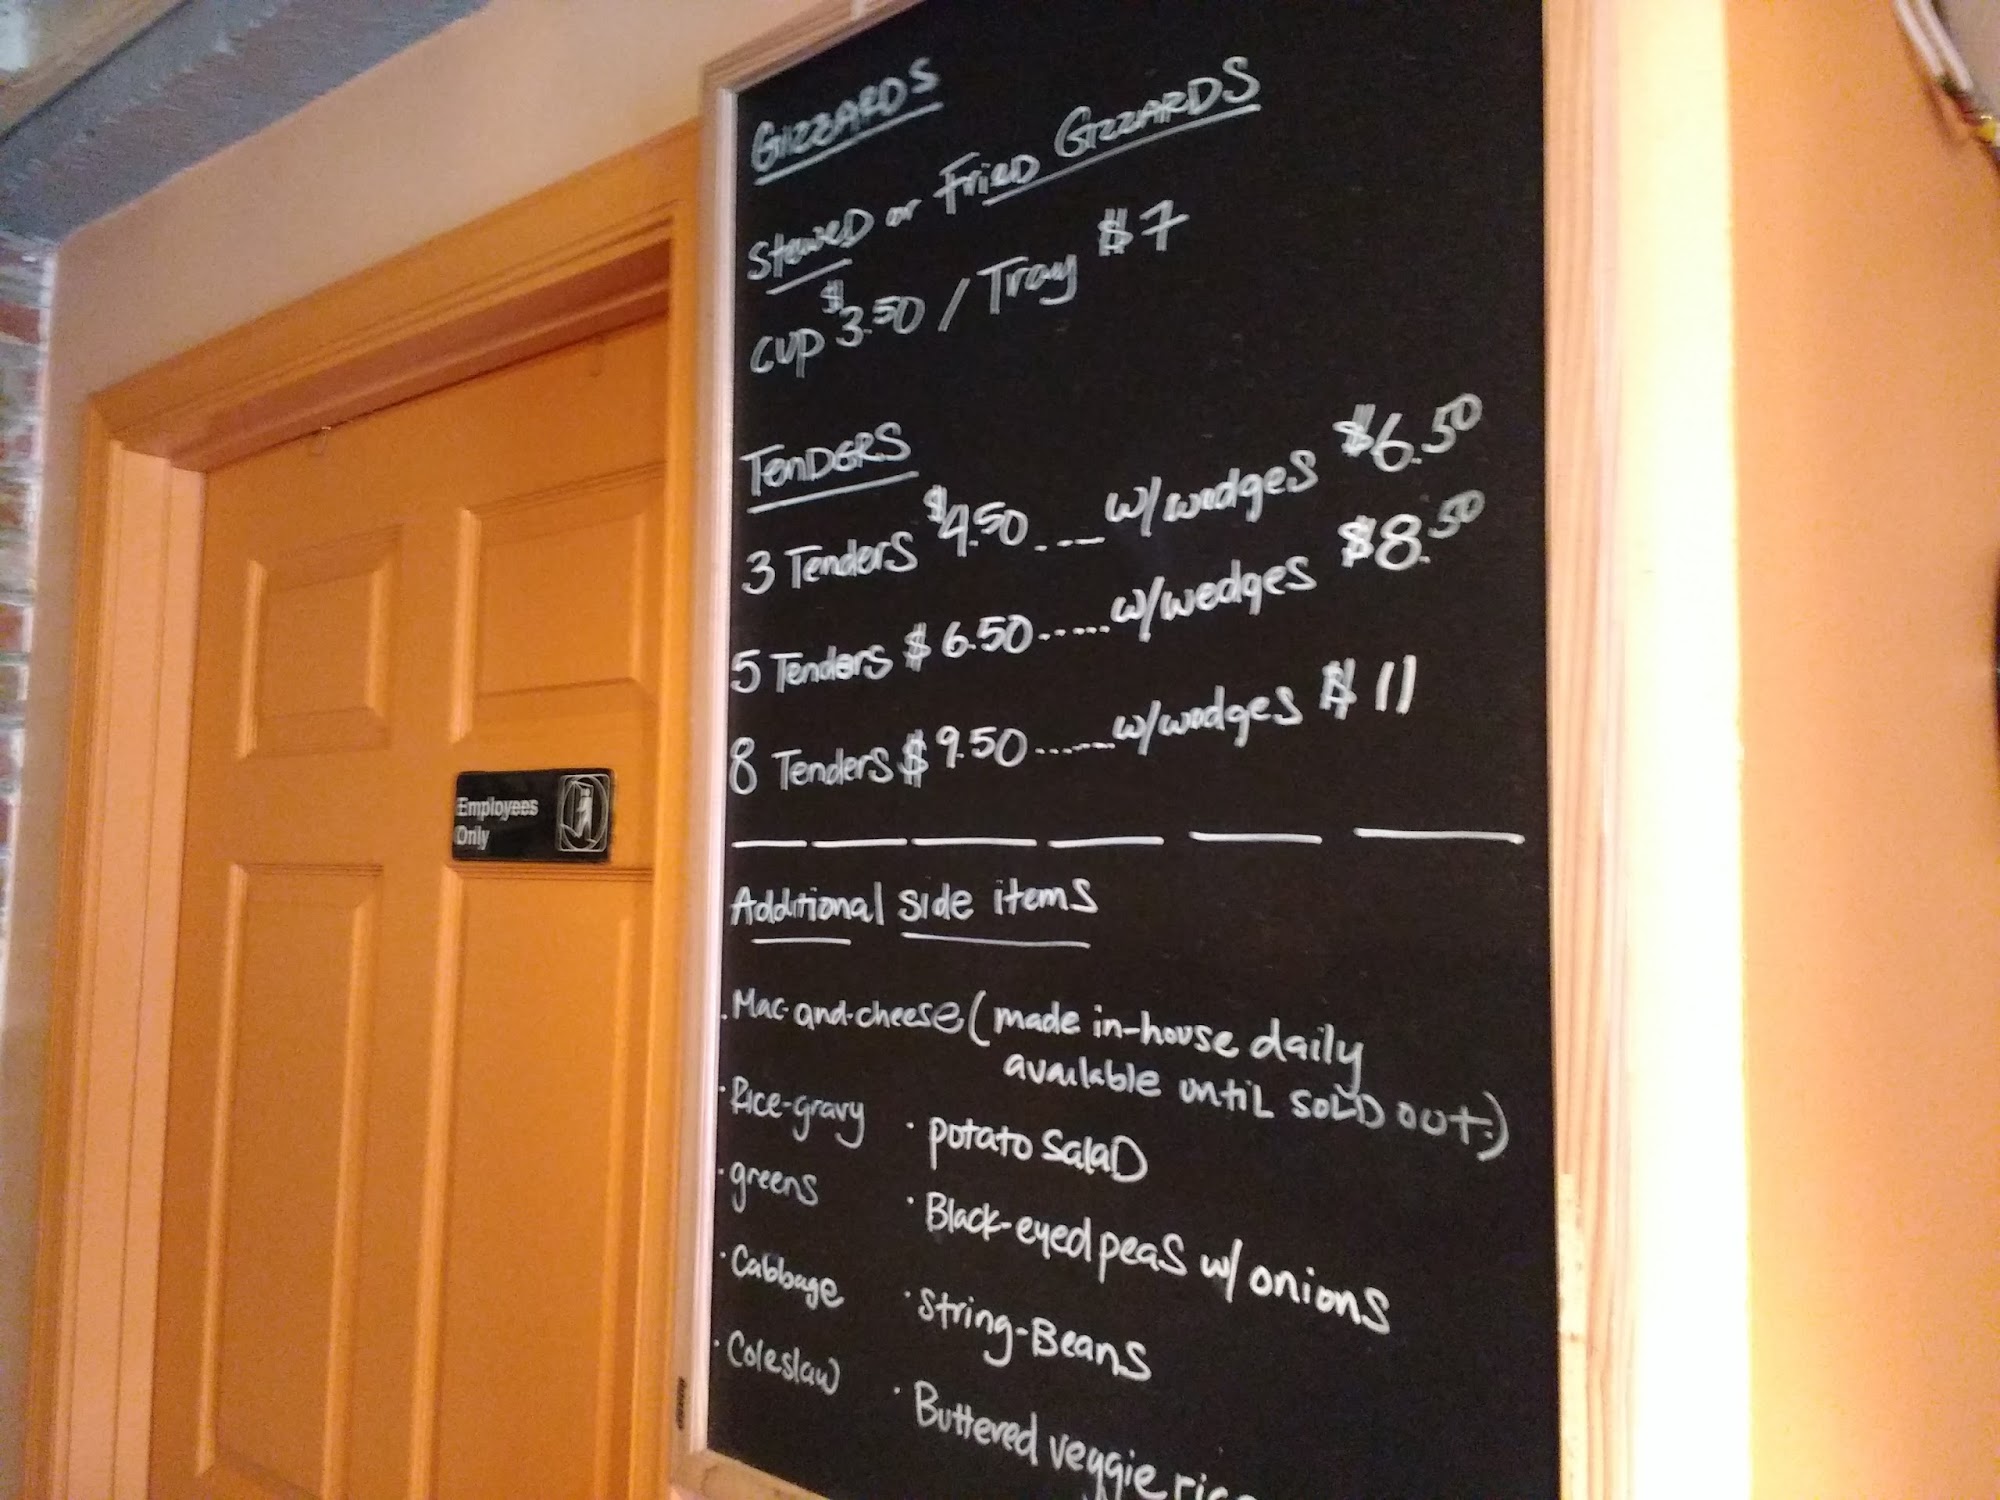 GIZZARDS
Stewed or Fried GIZZARDS
cup $3.50 / Tray $7
TENDERS
3 Tenders $4.50 .... w/wedges $6.50
5 Tenders $6.50 ...... w/wedges $8.50
8 Tenders $9.50 ...... w/wedges $11
Additional side items
· Mac-and-cheese (made in-house daily
available until SOLD out.)
· Rice-gravy
· greens
· Cabbage
· Coleslaw
· potato salaD
· Black-eyed peas w/ onions
· String-Beans
· Buttered veggie
Employees
Only